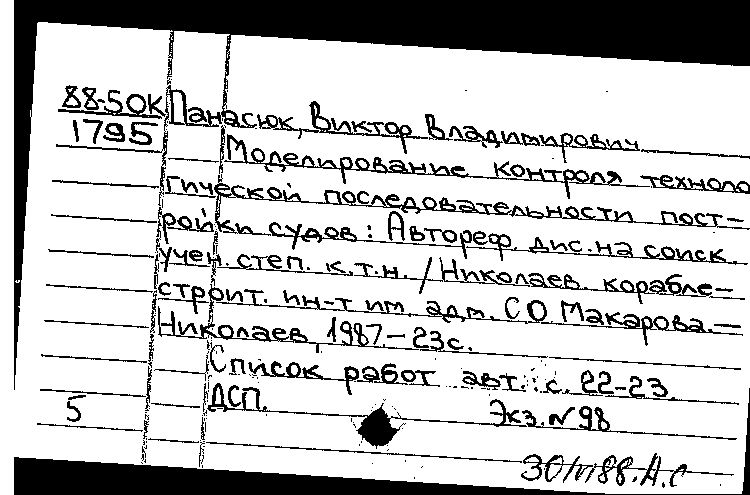 88-50К Панасюк, Виктор Владимирович
1795 Моделирование контроля техноло
гической последовательности пост-
ройки судов: Автореф. дис. на соиск.
учен. степ. к.т.н. / Николаев. корабле-
строит. ин-т им. адм. СО Макарова.—
Николаев, 1987.—23с.
Список работ авт.: с. 22-23.
ДСП. Экз. N98
5
88. А.С